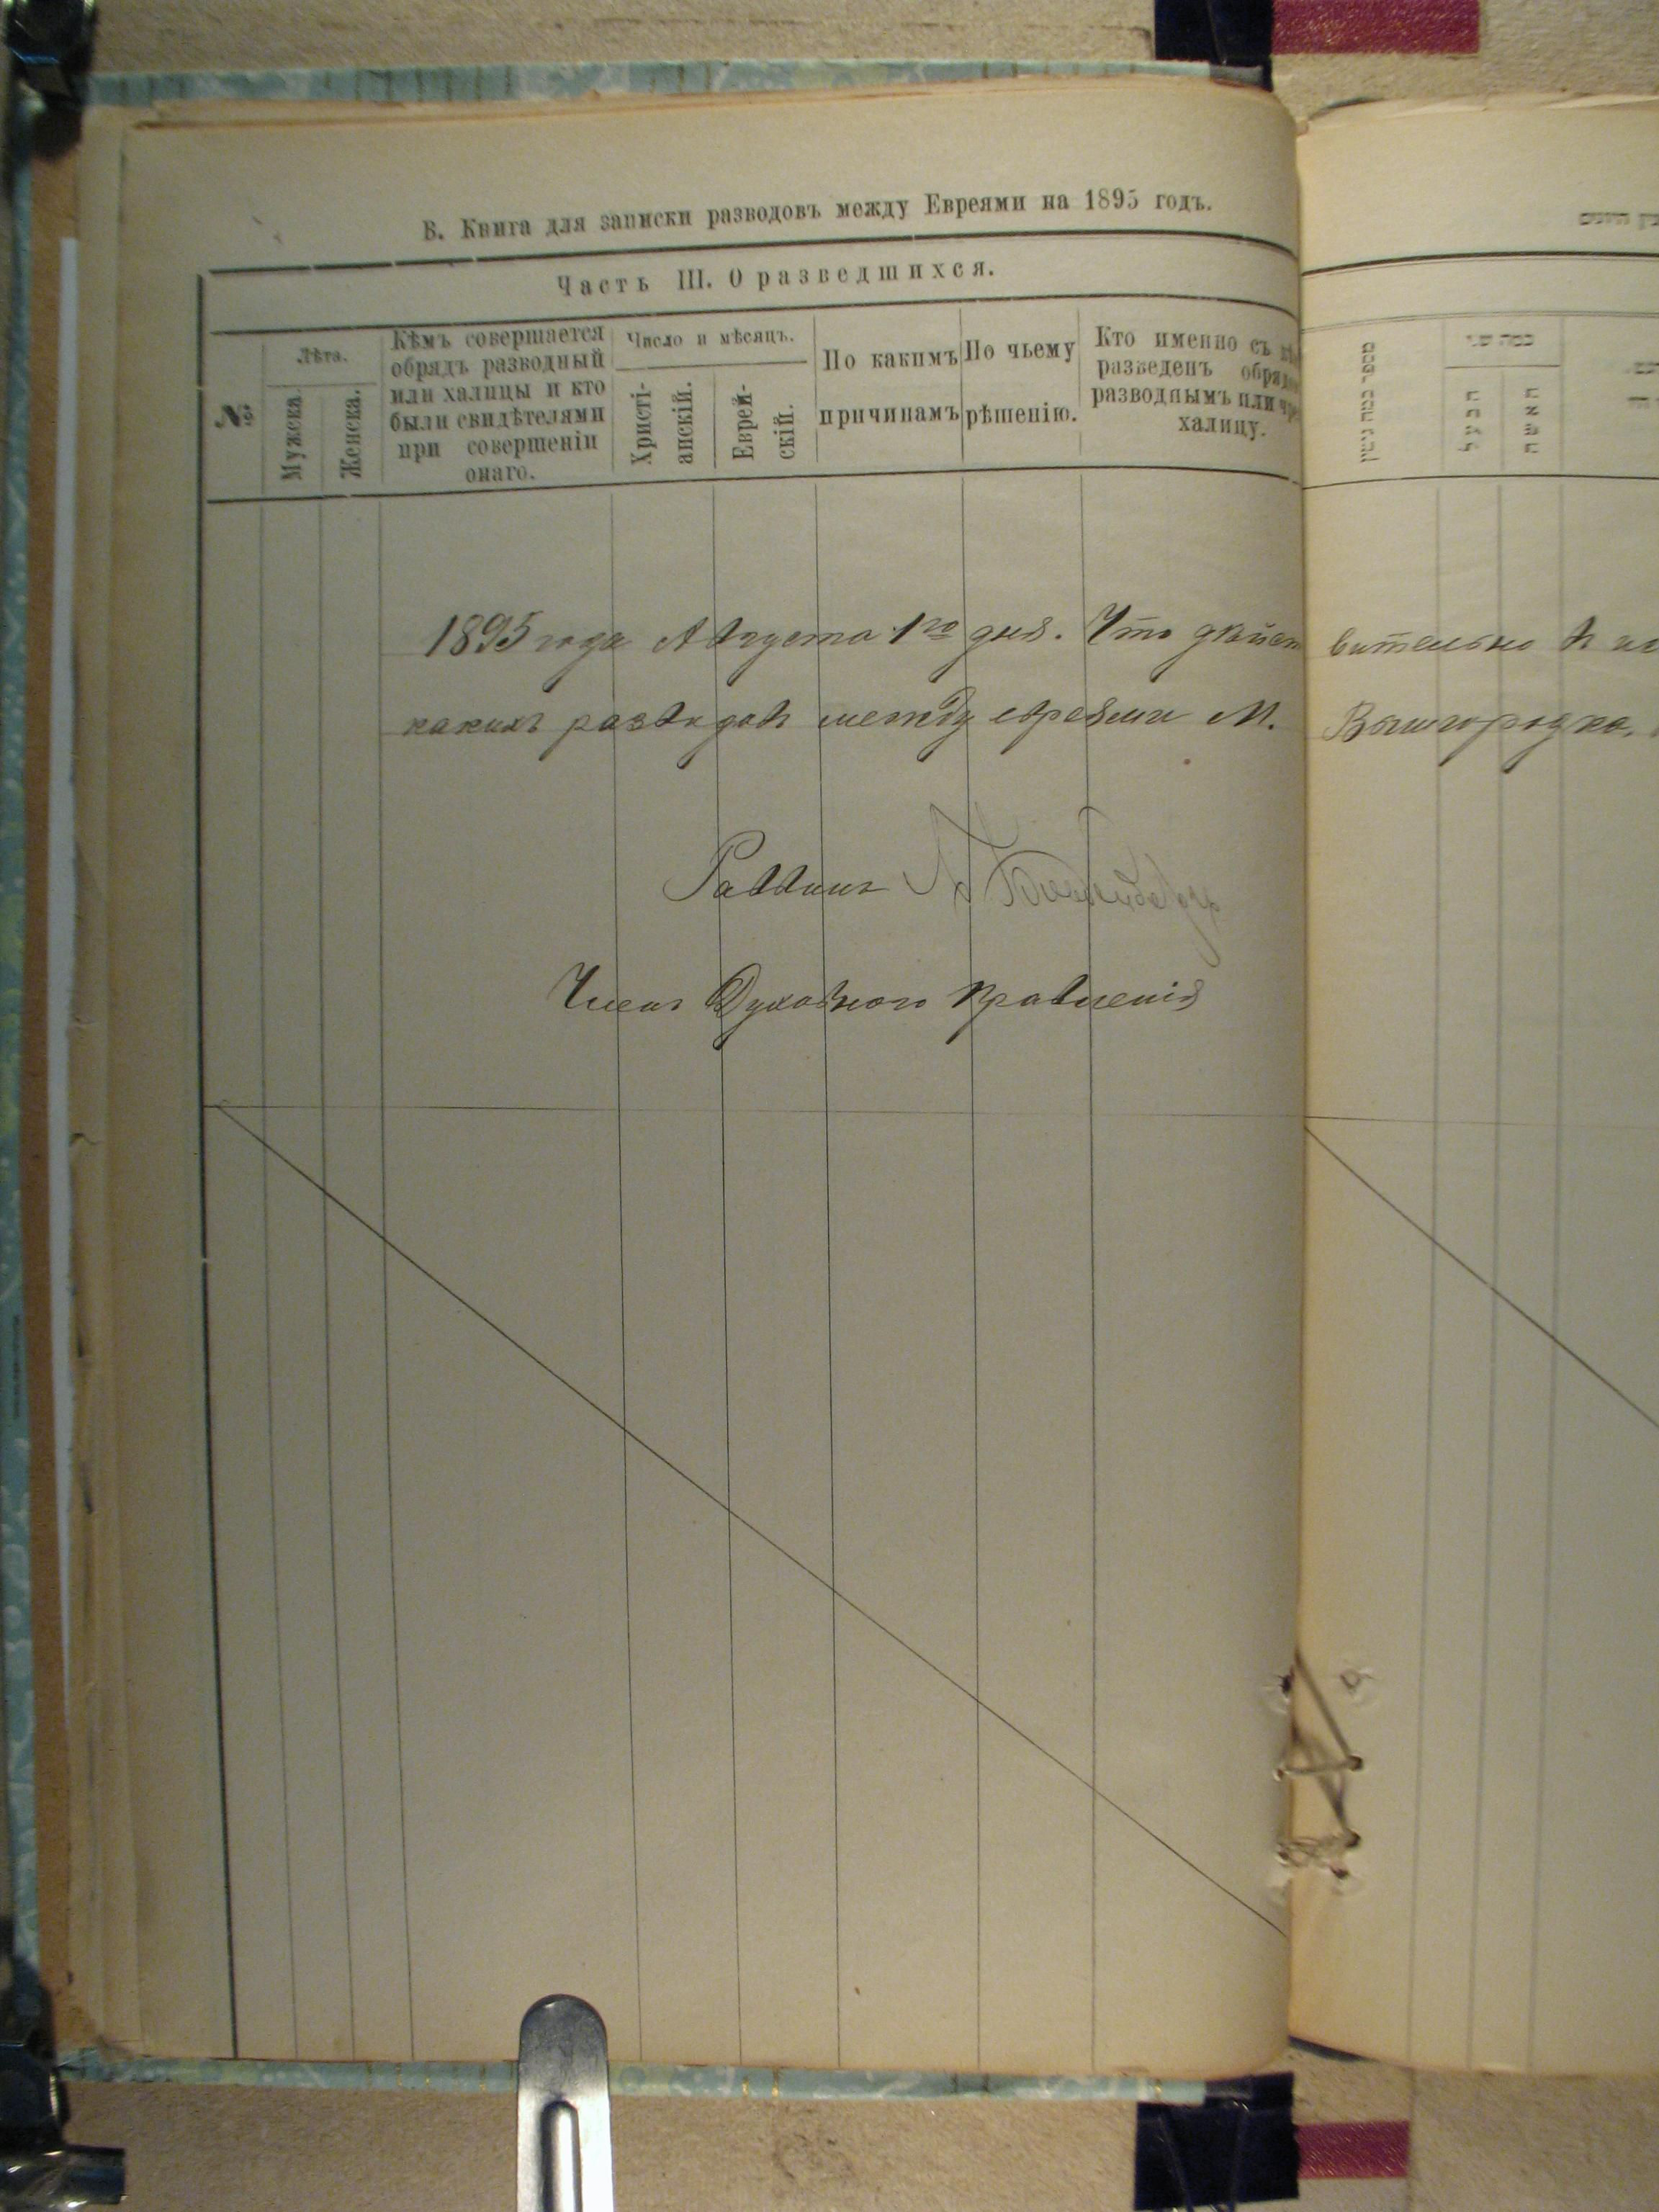 В. Книга для записки разводовъ между Евреями на 1895 годъ.
Часть III. О разведшихся.
№
Лѣта.
Мужеска.
Женска.
Кѣмъ совершается
обрядъ разводный
или халицы и кто
были свидѣтелями
при совершеніи
онаго.
Число и мѣсяцъ.
Христі-
анскій.
Еврей-
скій.
По какимъ
причинамъ
По чьему
рѣшенію.
Кто именно съ
разведенъ
разводнымъ или
халицу.
1895 года Августа 1го дня. Что дѣйст вительно въ
какихъ разводовъ между евреями М. Вышгородка.
Раввинъ
Членъ Духовнаго Правленія
הבעל
האשה